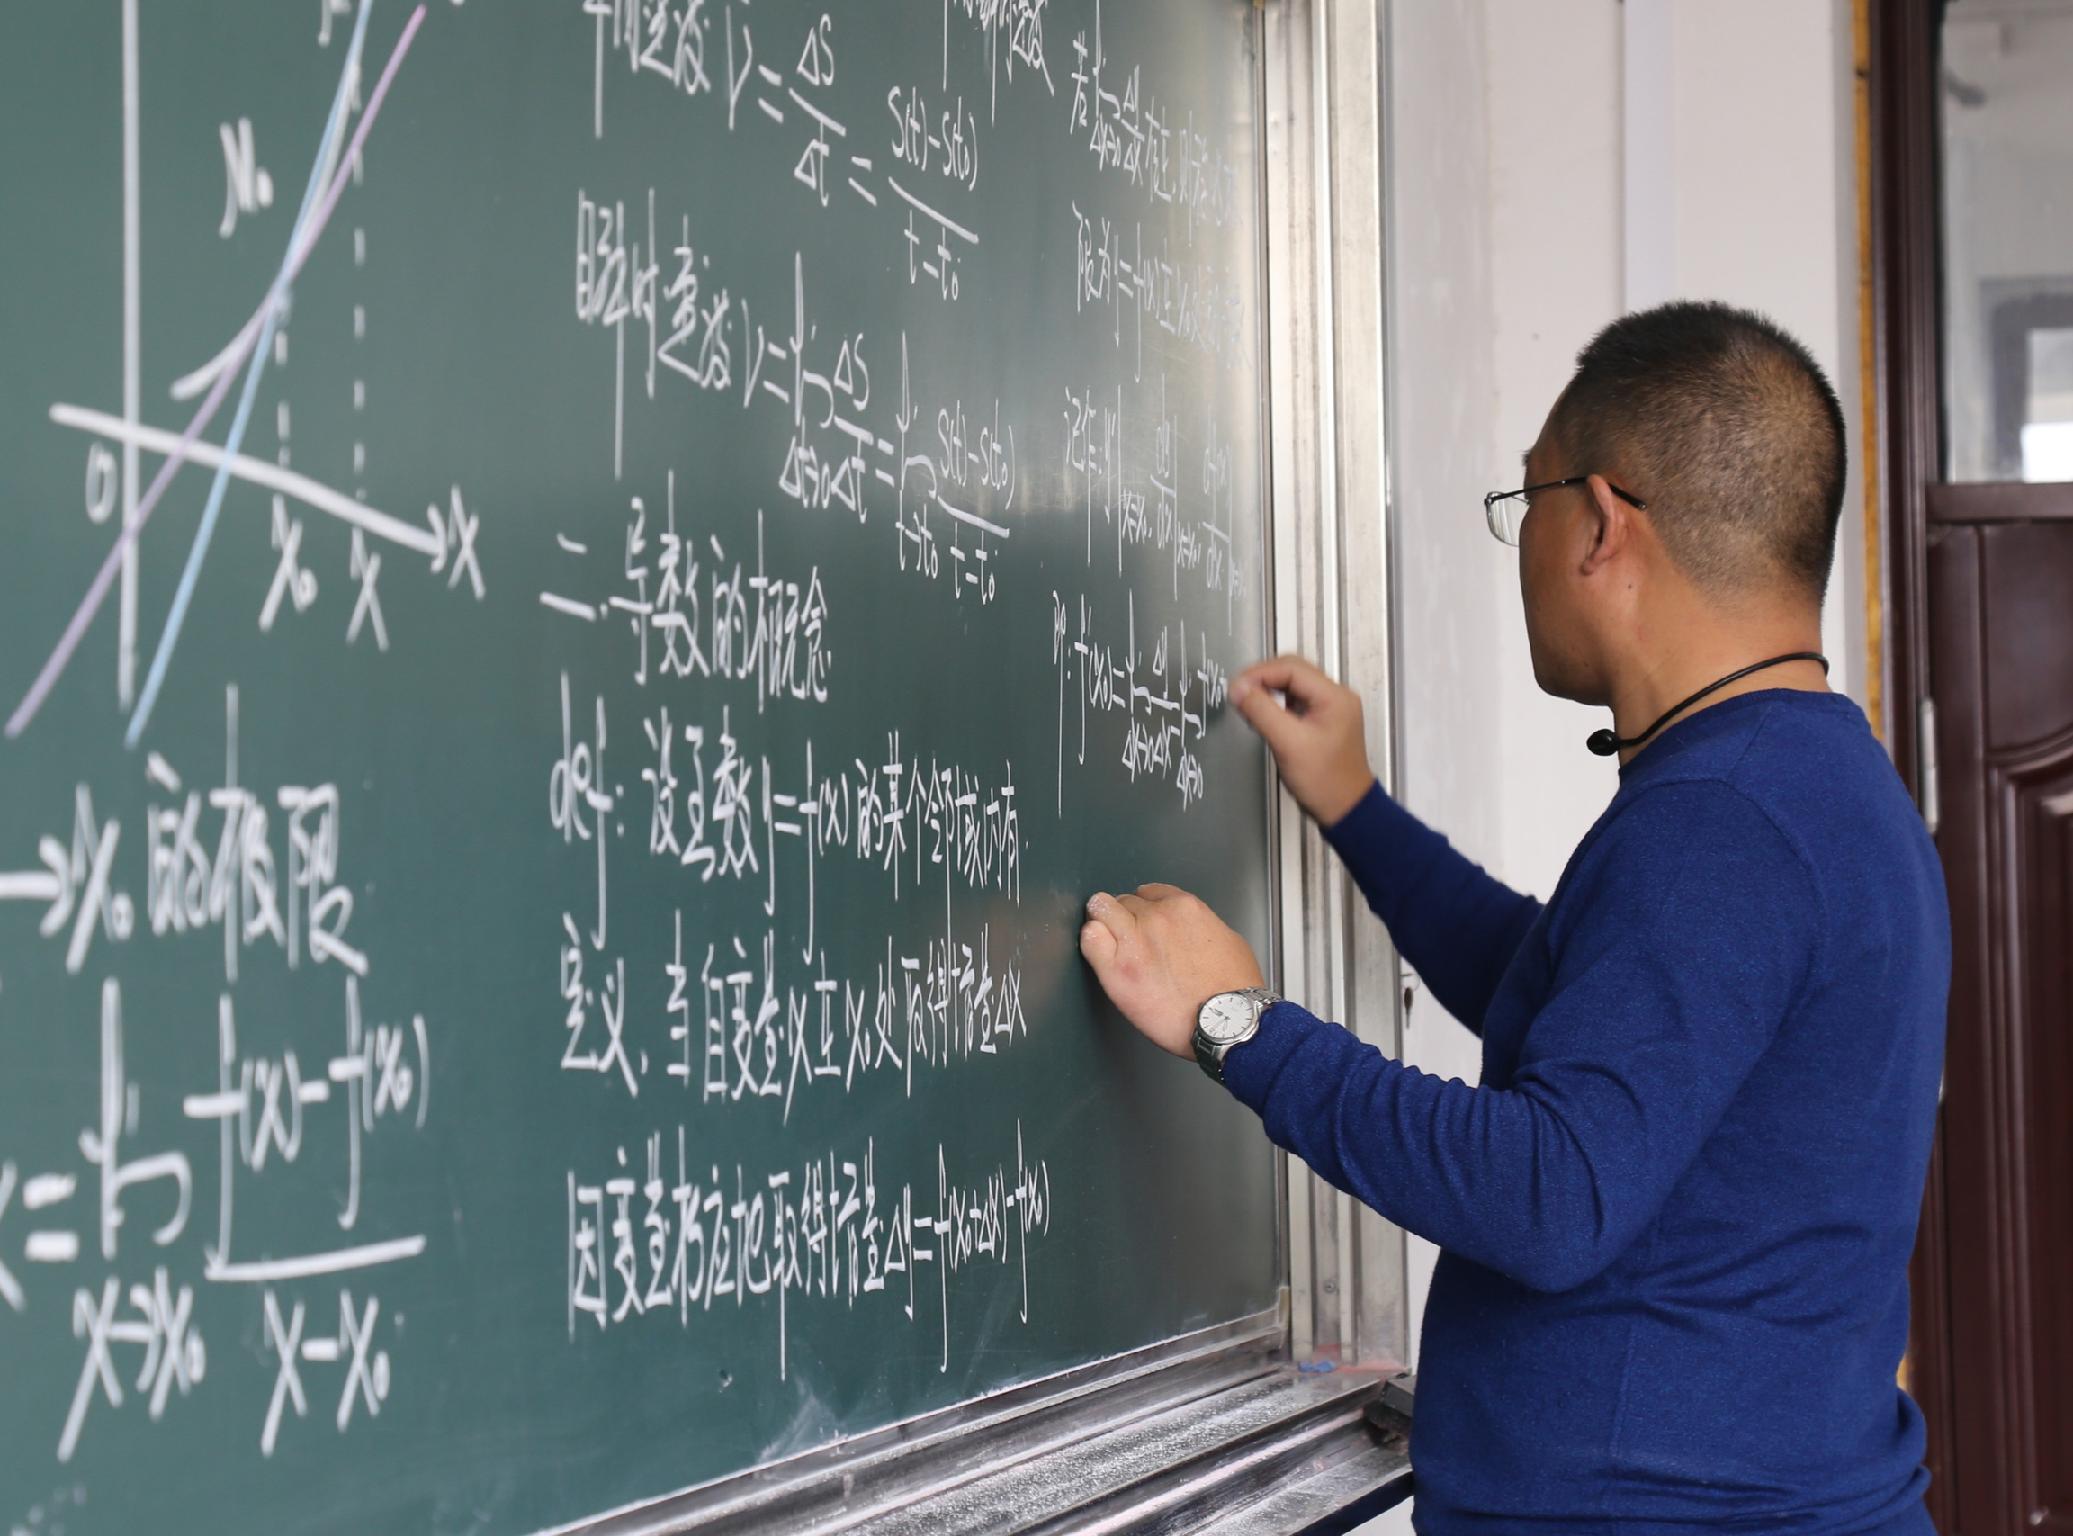 M₀
0 x₀ x x
→x₀的极限
= lim f(x)-f(x₀) / x-x₀
x→x₀
平均速度 V = ΔS/Δt = S(t)-S(t₀) / t-t₀
瞬时速度 V = lim ΔS/Δt = lim S(t)-S(t₀) / t-t₀
Δt→0 t→t₀
二.导数的概念
def: 设函数y=f(x)的某个邻域内有
定义,当自变量x在x₀处取得增量Δx
因变量相应地取得增量Δy=f(x₀+Δx)-f(x₀)
若 lim Δy/Δx 存在,则
Δx→0
限为y=f(x)在x₀处的导数
记作y'|x=x₀, dy/dx|x=x₀,
即: f'(x₀)= lim Δy/Δx = lim f(x₀+
Δx→0 Δx→0